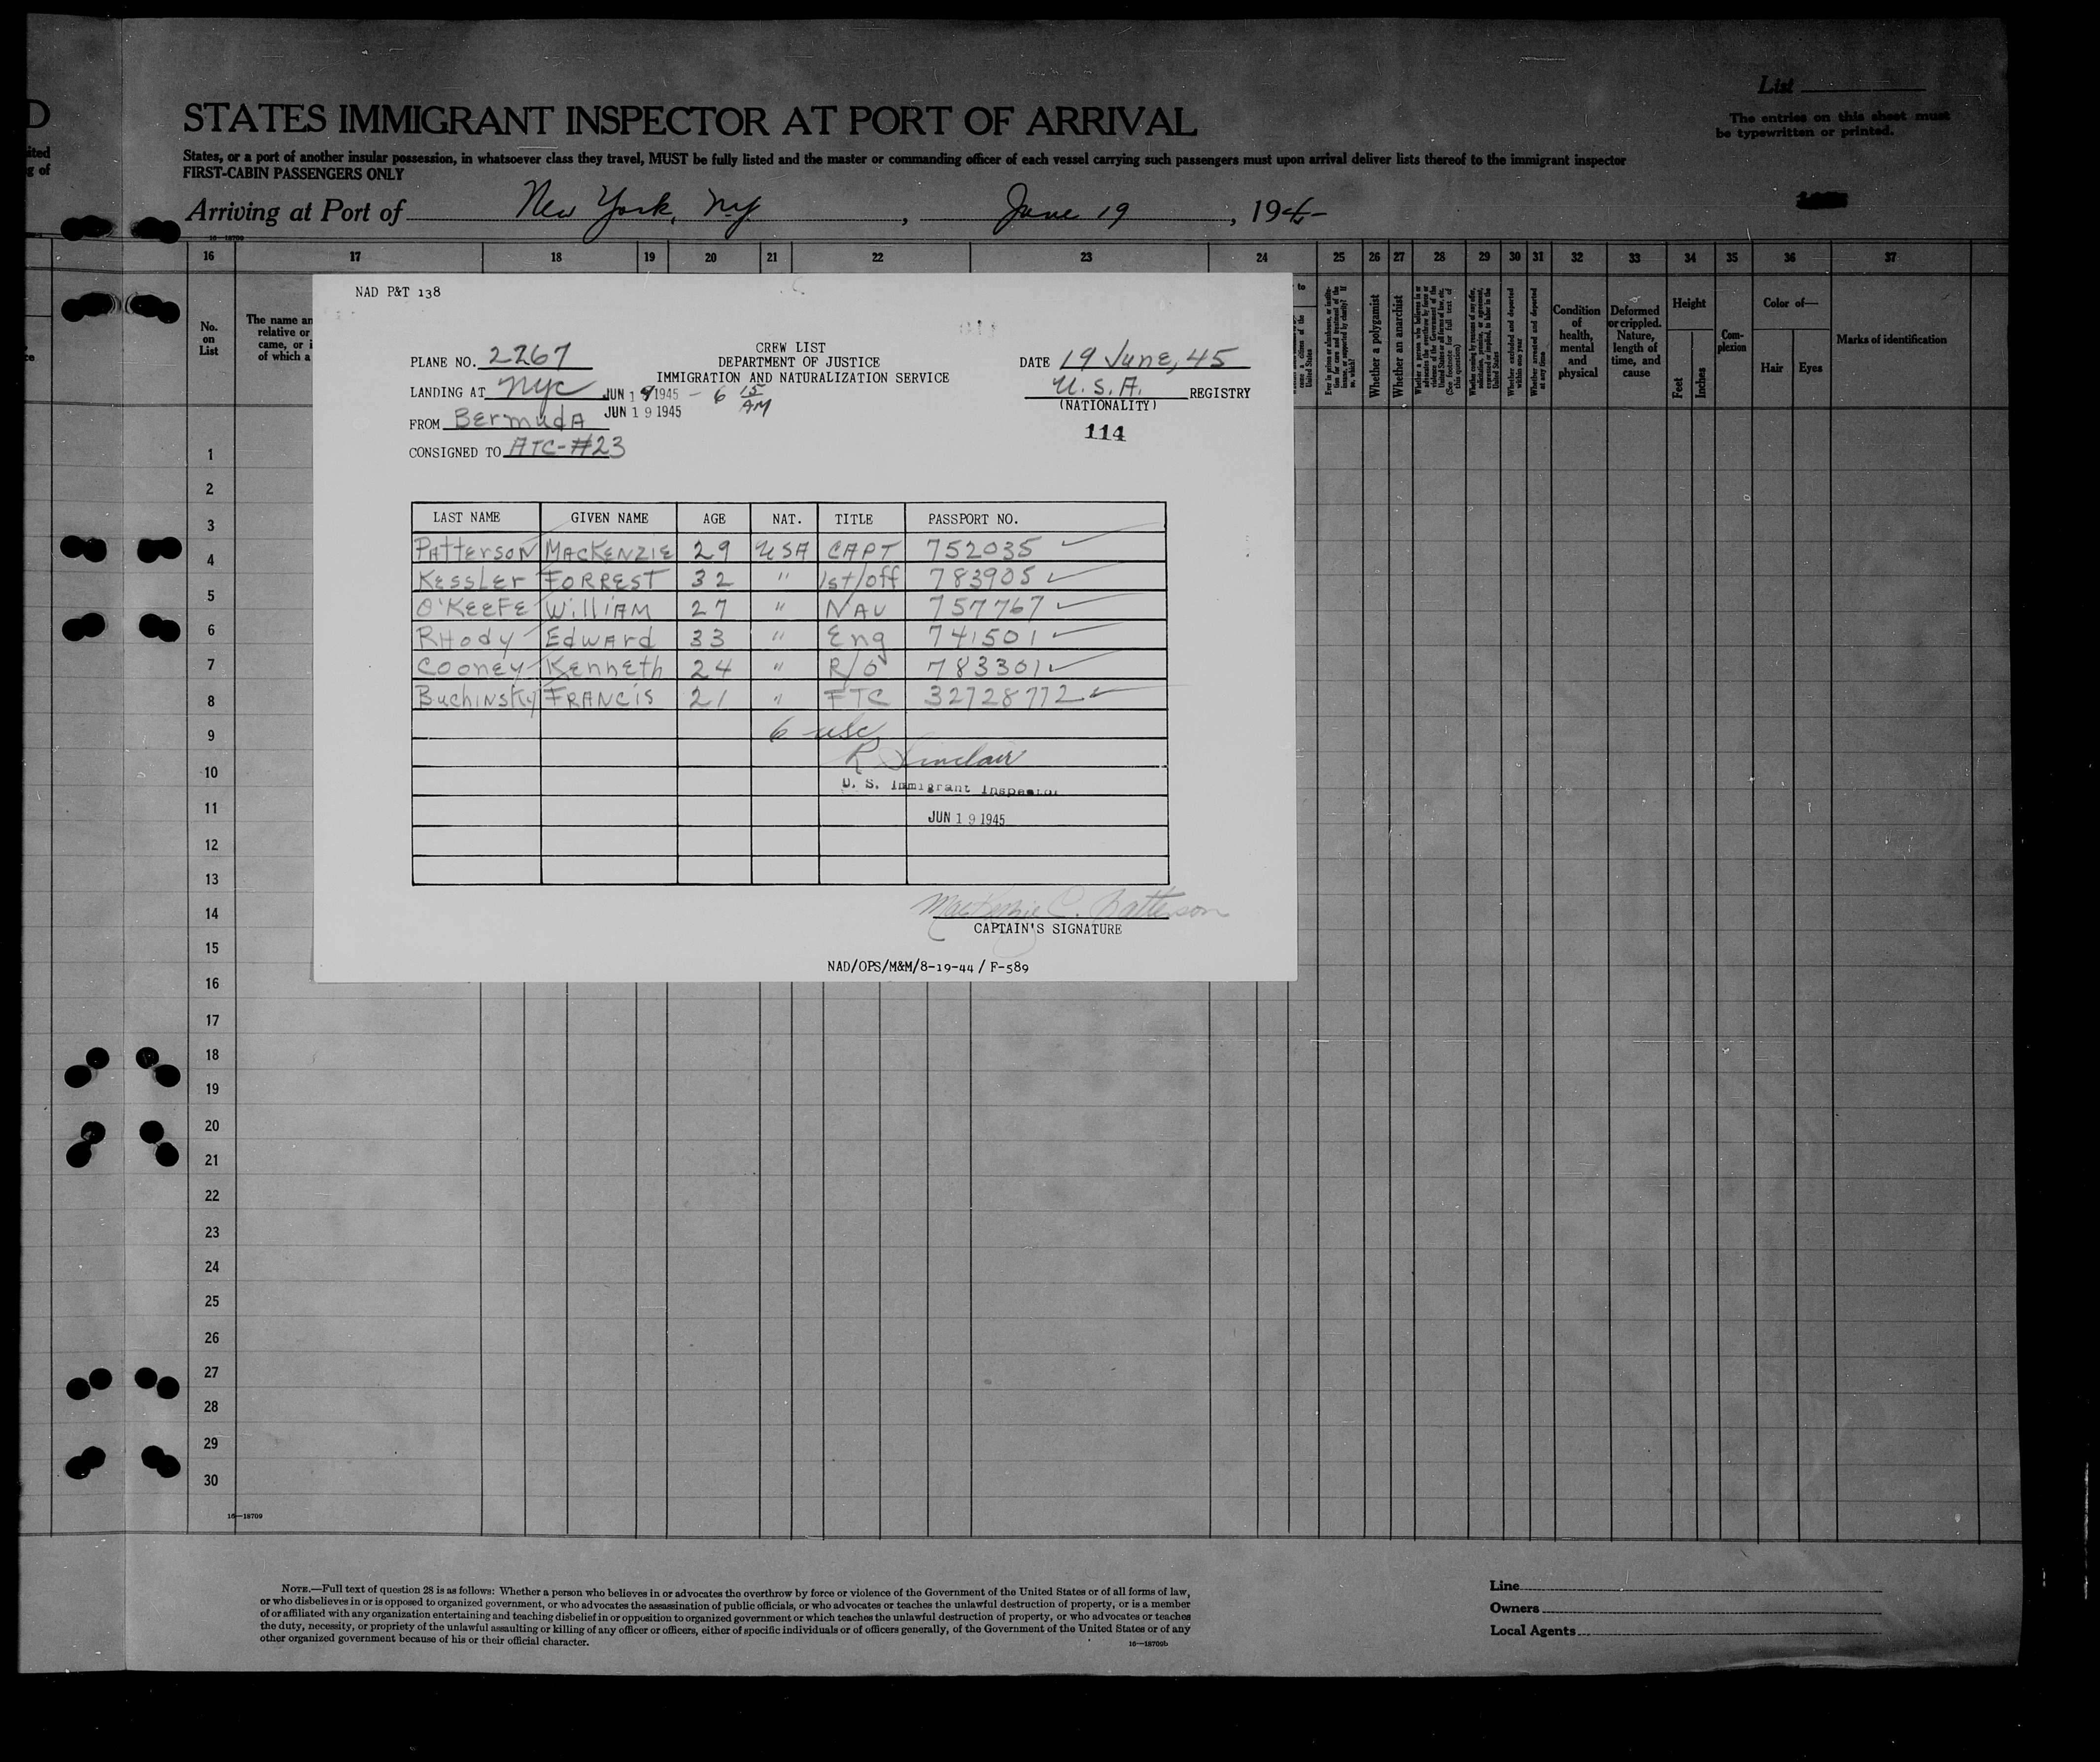 D
ited
g of
List
STATES IMMIGRANT INSPECTOR AT PORT OF ARRIVAL
The entries on this sheet must
be typewritten or printed.
States, or a port of another insular possession, in whatsoever class they travel, MUST be fully listed and the master or commanding officer of each vessel carrying such passengers must upon arrival deliver lists thereof to the immigrant inspector
FIRST-CABIN PASSENGERS ONLY
Arriving at Port of New York, N.Y. , June 19 , 194
16—18709
16 17 18 19 20 21 22 23 24 25 26 27 28 29 30 31 32 33 34 35 36 37
No.
on
List
The name an
relative or
came, or i
of which a
Whether a polygamist
Whether an anarchist
Condition
of
health,
mental
and
physical
Deformed
or crippled.
Nature,
length of
time, and
cause
Height
Feet
Inches
Com-
plexion
Color of—
Hair Eyes
Marks of identification
NAD P&T 138
CREW LIST
DEPARTMENT OF JUSTICE
IMMIGRATION AND NATURALIZATION SERVICE
PLANE NO. 2267
DATE 19 June, 45
LANDING AT NYC JUN 19 1945 — 6 15 AM
U.S.A. REGISTRY
(NATIONALITY)
FROM Bermuda JUN 19 1945
114
CONSIGNED TO ATC-#23
LAST NAME GIVEN NAME AGE NAT. TITLE PASSPORT NO.
Patterson MacKenzie 29 USA CAPT 752035
Kessler Forrest 32 " 1st/off 783905
O'Keefe William 27 " NAV 757767
Rhody Edward 33 " Eng 741501
Cooney Kenneth 24 " R/O 783301
Buchinsky Francis 21 " FTC 32728772
6 usc
R Sinclair
U. S. Immigrant Inspector
JUN 19 1945
MacKenzie C. Patterson
CAPTAIN'S SIGNATURE
NAD/OPS/M&M/8-19-44 / F-589
1
2
3
4
5
6
7
8
9
10
11
12
13
14
15
16
17
18
19
20
21
22
23
24
25
26
27
28
29
30
16—18709
NOTE.—Full text of question 28 is as follows: Whether a person who believes in or advocates the overthrow by force or violence of the Government of the United States or of all forms of law,
or who disbelieves in or is opposed to organized government, or who advocates the assassination of public officials, or who advocates or teaches the unlawful destruction of property, or is a member
of or affiliated with any organization entertaining and teaching disbelief in or opposition to organized government or which teaches the unlawful destruction of property, or who advocates or teaches
the duty, necessity, or propriety of the unlawful assaulting or killing of any officer or officers, either of specific individuals or of officers generally, of the Government of the United States or of any
other organized government because of his or their official character.
16—18709b
Line
Owners
Local Agents